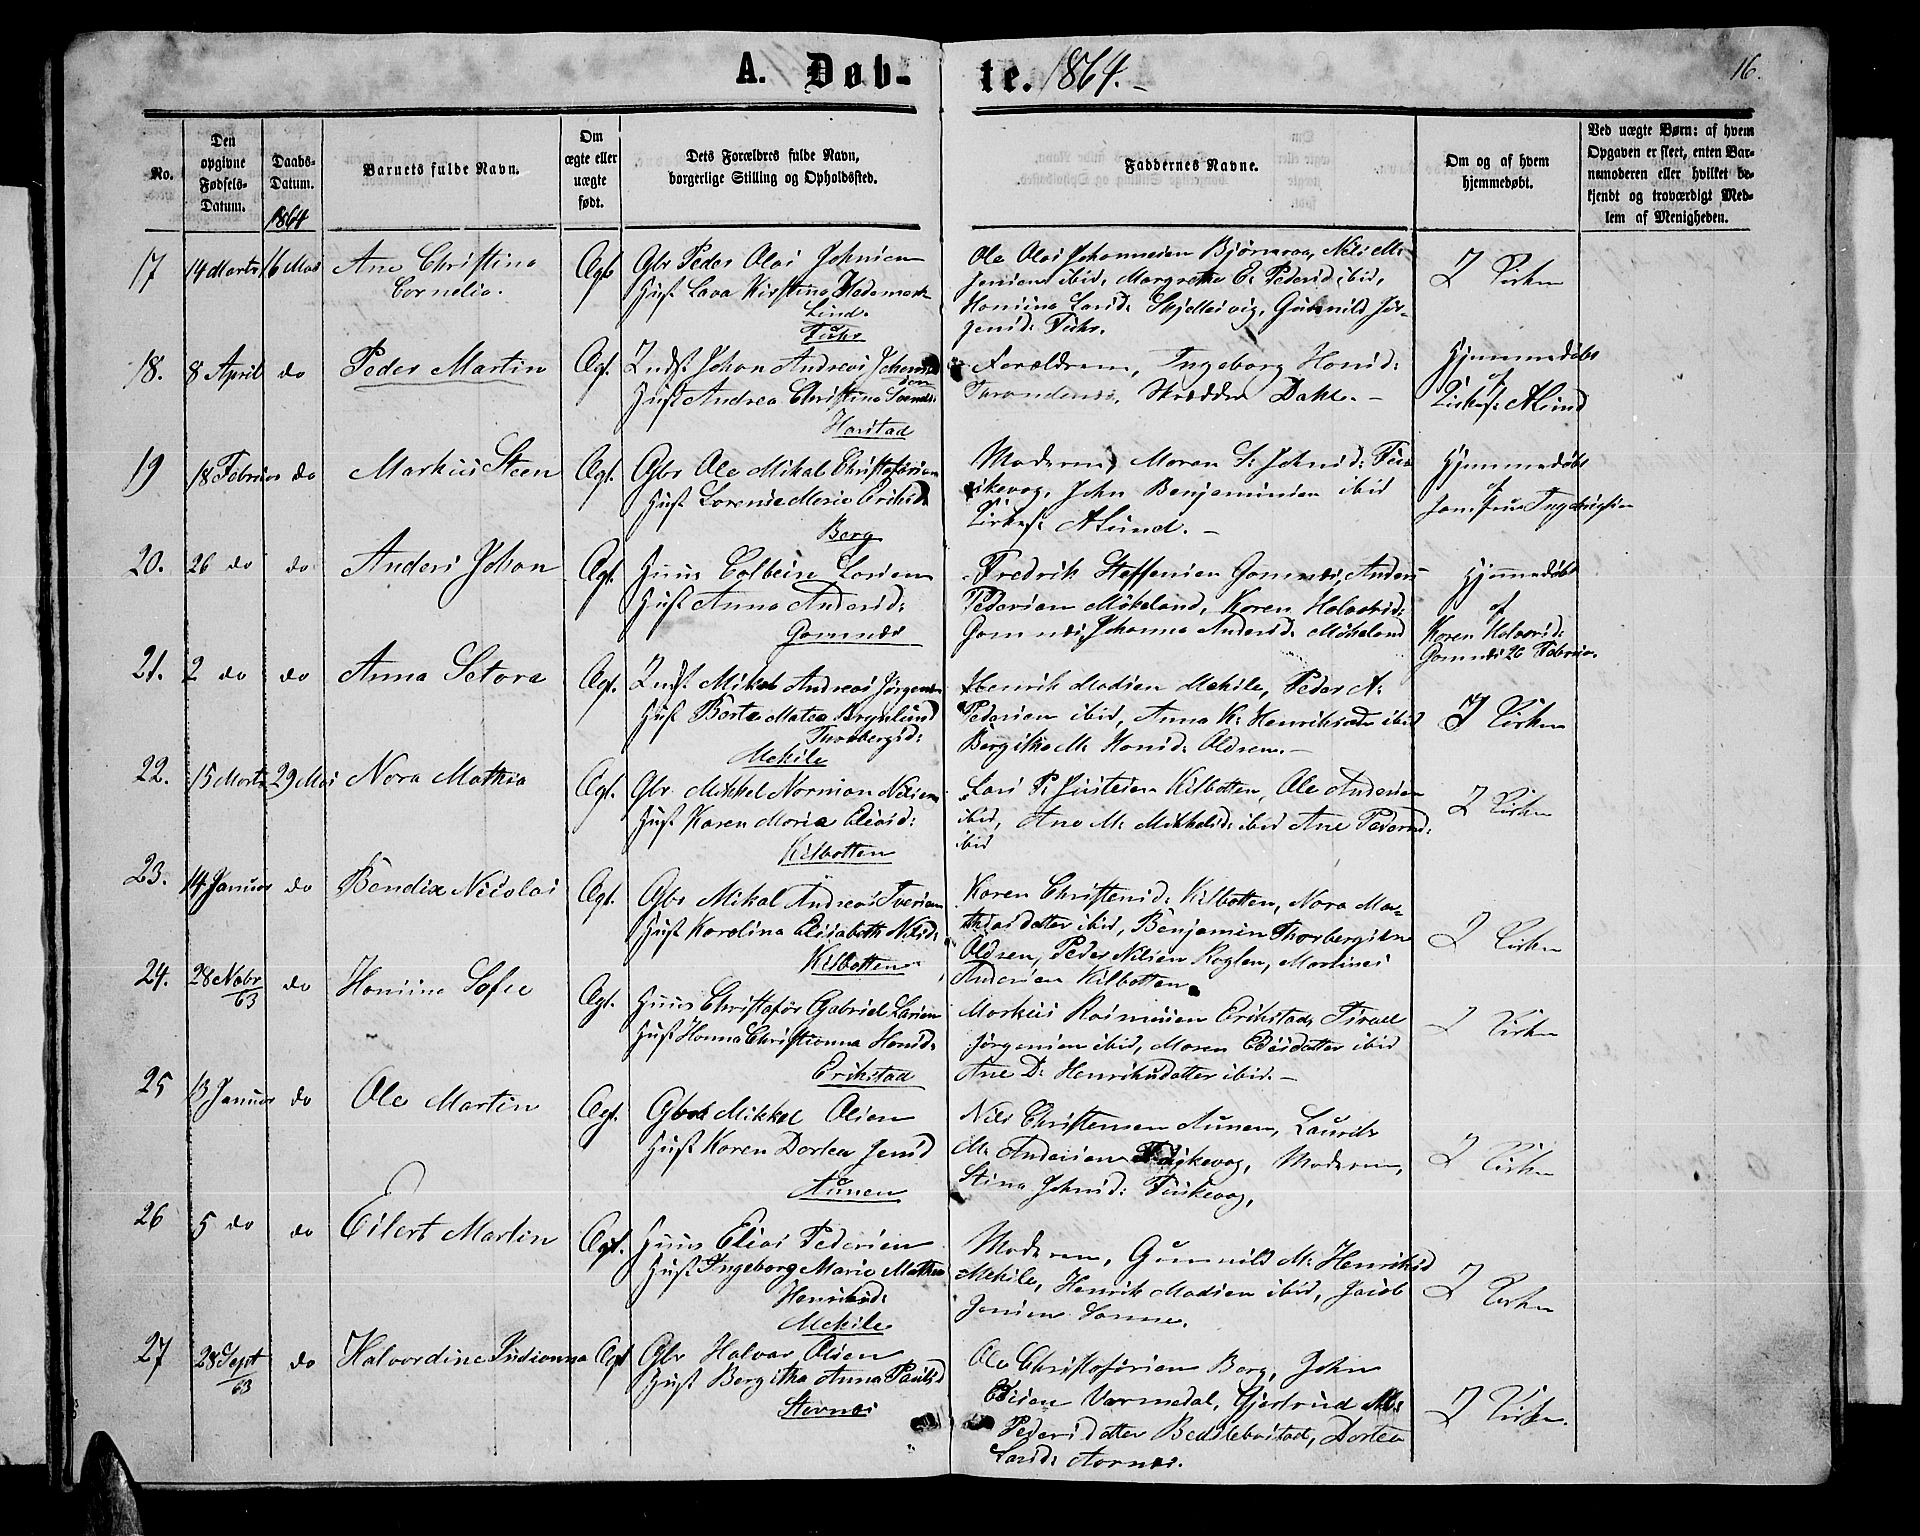 A. Døb-te. 1864.-
16.
No.
Den opgivne Fødsels-Datum.
Daabs-Datum. 1864
Barnets fulde Navn.
Om ægte eller uægte født.
Dets Forældres fulde Navn, borgerlige Stilling og Opholdssted.
Faddernes Navne.
Om og af hvem hjemmedøbt.
Ved uægte Børn: af hvem Opgaven er skeet, enten Barnemoderen eller hvilket bekjendt og troværdigt Medlem af Menigheden.
17 14 Marts 16 Mai Ane Christina Cornelia. Ægt
Gbr Peder Olai Johnsen
Hust Lava Kirstina Hademark
Lind.
Fuhr
Ole Olai Johannesen Bjørnraa, Nils M:
Jensen ibid, Margrethe E: Pedersd ibid,
Hansina Larsd: Skjellesvig, Gunnild Jør-
gensd: Fuhr.
I Kirken
18. 8 April do Peder Martin Ægt.
Indst Johan Andreas Johansen
Hust Andrea Christina Svends:
Harstad
Forældrene, Ingeborg Hansd:
Trondenes, Skrædder Dahl. -
Hjemmedøbt
af
Kirkes: Aslund
19 18 Februar do Markus Steen Ægt.
Gbr Ole Mikal Christofersen
Hust Lorense Marie Eriksd:
Berg
Moderen, Maren S: Johnsd: Fus
kevaag, John Benjaminsen ibid
Kirkes: Aslund. -
Hjemmedøbt
af
Jomfrue Ingebrigtsen
20. 26 do do Anders Johan Ægt.
Huus Colbein Larsen
Hust Anna Andersd:
Gomnæs
Fredrik Steffensen Gomnæs, Anders
Pedersen Møkeland, Karen Halvorsd:
Gomnæs, Johanna Andersd: Møkeland
Hjemmedøbt
af
Karen Halvorsd:
Gomnæs 26 Februar.
21. 2 do do Anna Petora Ægt.
Indst Mikal Andreas Jørgensen
Hust Berte Matea Brynlund
Thorbergsd:
Mekile
Henrik Madsen Mekile, Peder A:
Pedersen ibid, Anna K: Henriksdatter ibid
Bergitha M: Hansd: Aldsen. -
I Kirken
22. 15 Marts 29 Mai Nora Mathea Ægt.
Gbr. Mikkel Norman Nilsen
Hust Karen Maria Eliasd:
Kilbotten
Lars P: Justesen Kilbotten, Ole Andersen
ibid, Ane M: Mikkelsd: ibid Ane Pedersd:
ibid
I Kirken
23. 14 Januar do Bendix Nicolai Ægt.
Gbr Mikal Andreas Iversen
Hust Karolina Elisabeth Nilsd:
Kilbotten
Karen Christensd: Kilbotten, Nora Ma-
thiasdatter ibid, Benjamin Thorbergsen
Aldsen, Peder Nilsen Roglen, Martines
Andersen Kilbotten
I Kirken
24. 28 Nobr/63 do Hansine Sofie Ægt.
Huus Christofer Gabriel Larsen
Hust Hanna Christianna Hansd:
Erikstad
Markus Rasmusen Erikstad,
Jørgensen ibid, Maren Edisdatter ibid
Ane D: Henriksdatter ibid. -
I Kirken
25 13 Januar do Ole Martin Ægt.
Mikkel Olsen
Hust Karen Dortea Jensd
Aunen
Nils Christensen Aunen, Laurits
M: Andersen Fuskevaag, Moderen,
Stina Johnsd: Fuskevaag,
I Kirken
26 5 do do Eilert Martin Ægt.
Huus Elias Pedersen
Hust Ingeborg Marie Mathea
Henriksd:
Mekile
Moderen, Gunnild M: Henriksd
Mekile, Henrik Madsen ibid, Jacob
Jensen Sanne.
I Kirken
27 28 Sept/63 do Halvordine Ægt
Gbr Halvor Olsen
Hust Bergitha Anna Paulsd
Stornæs
Ole Christofersen Berg, John
Varmedal, Gjertrud M:
Pedersdatter, Dortea
Larsd: Aarnæs.
I Kirken.